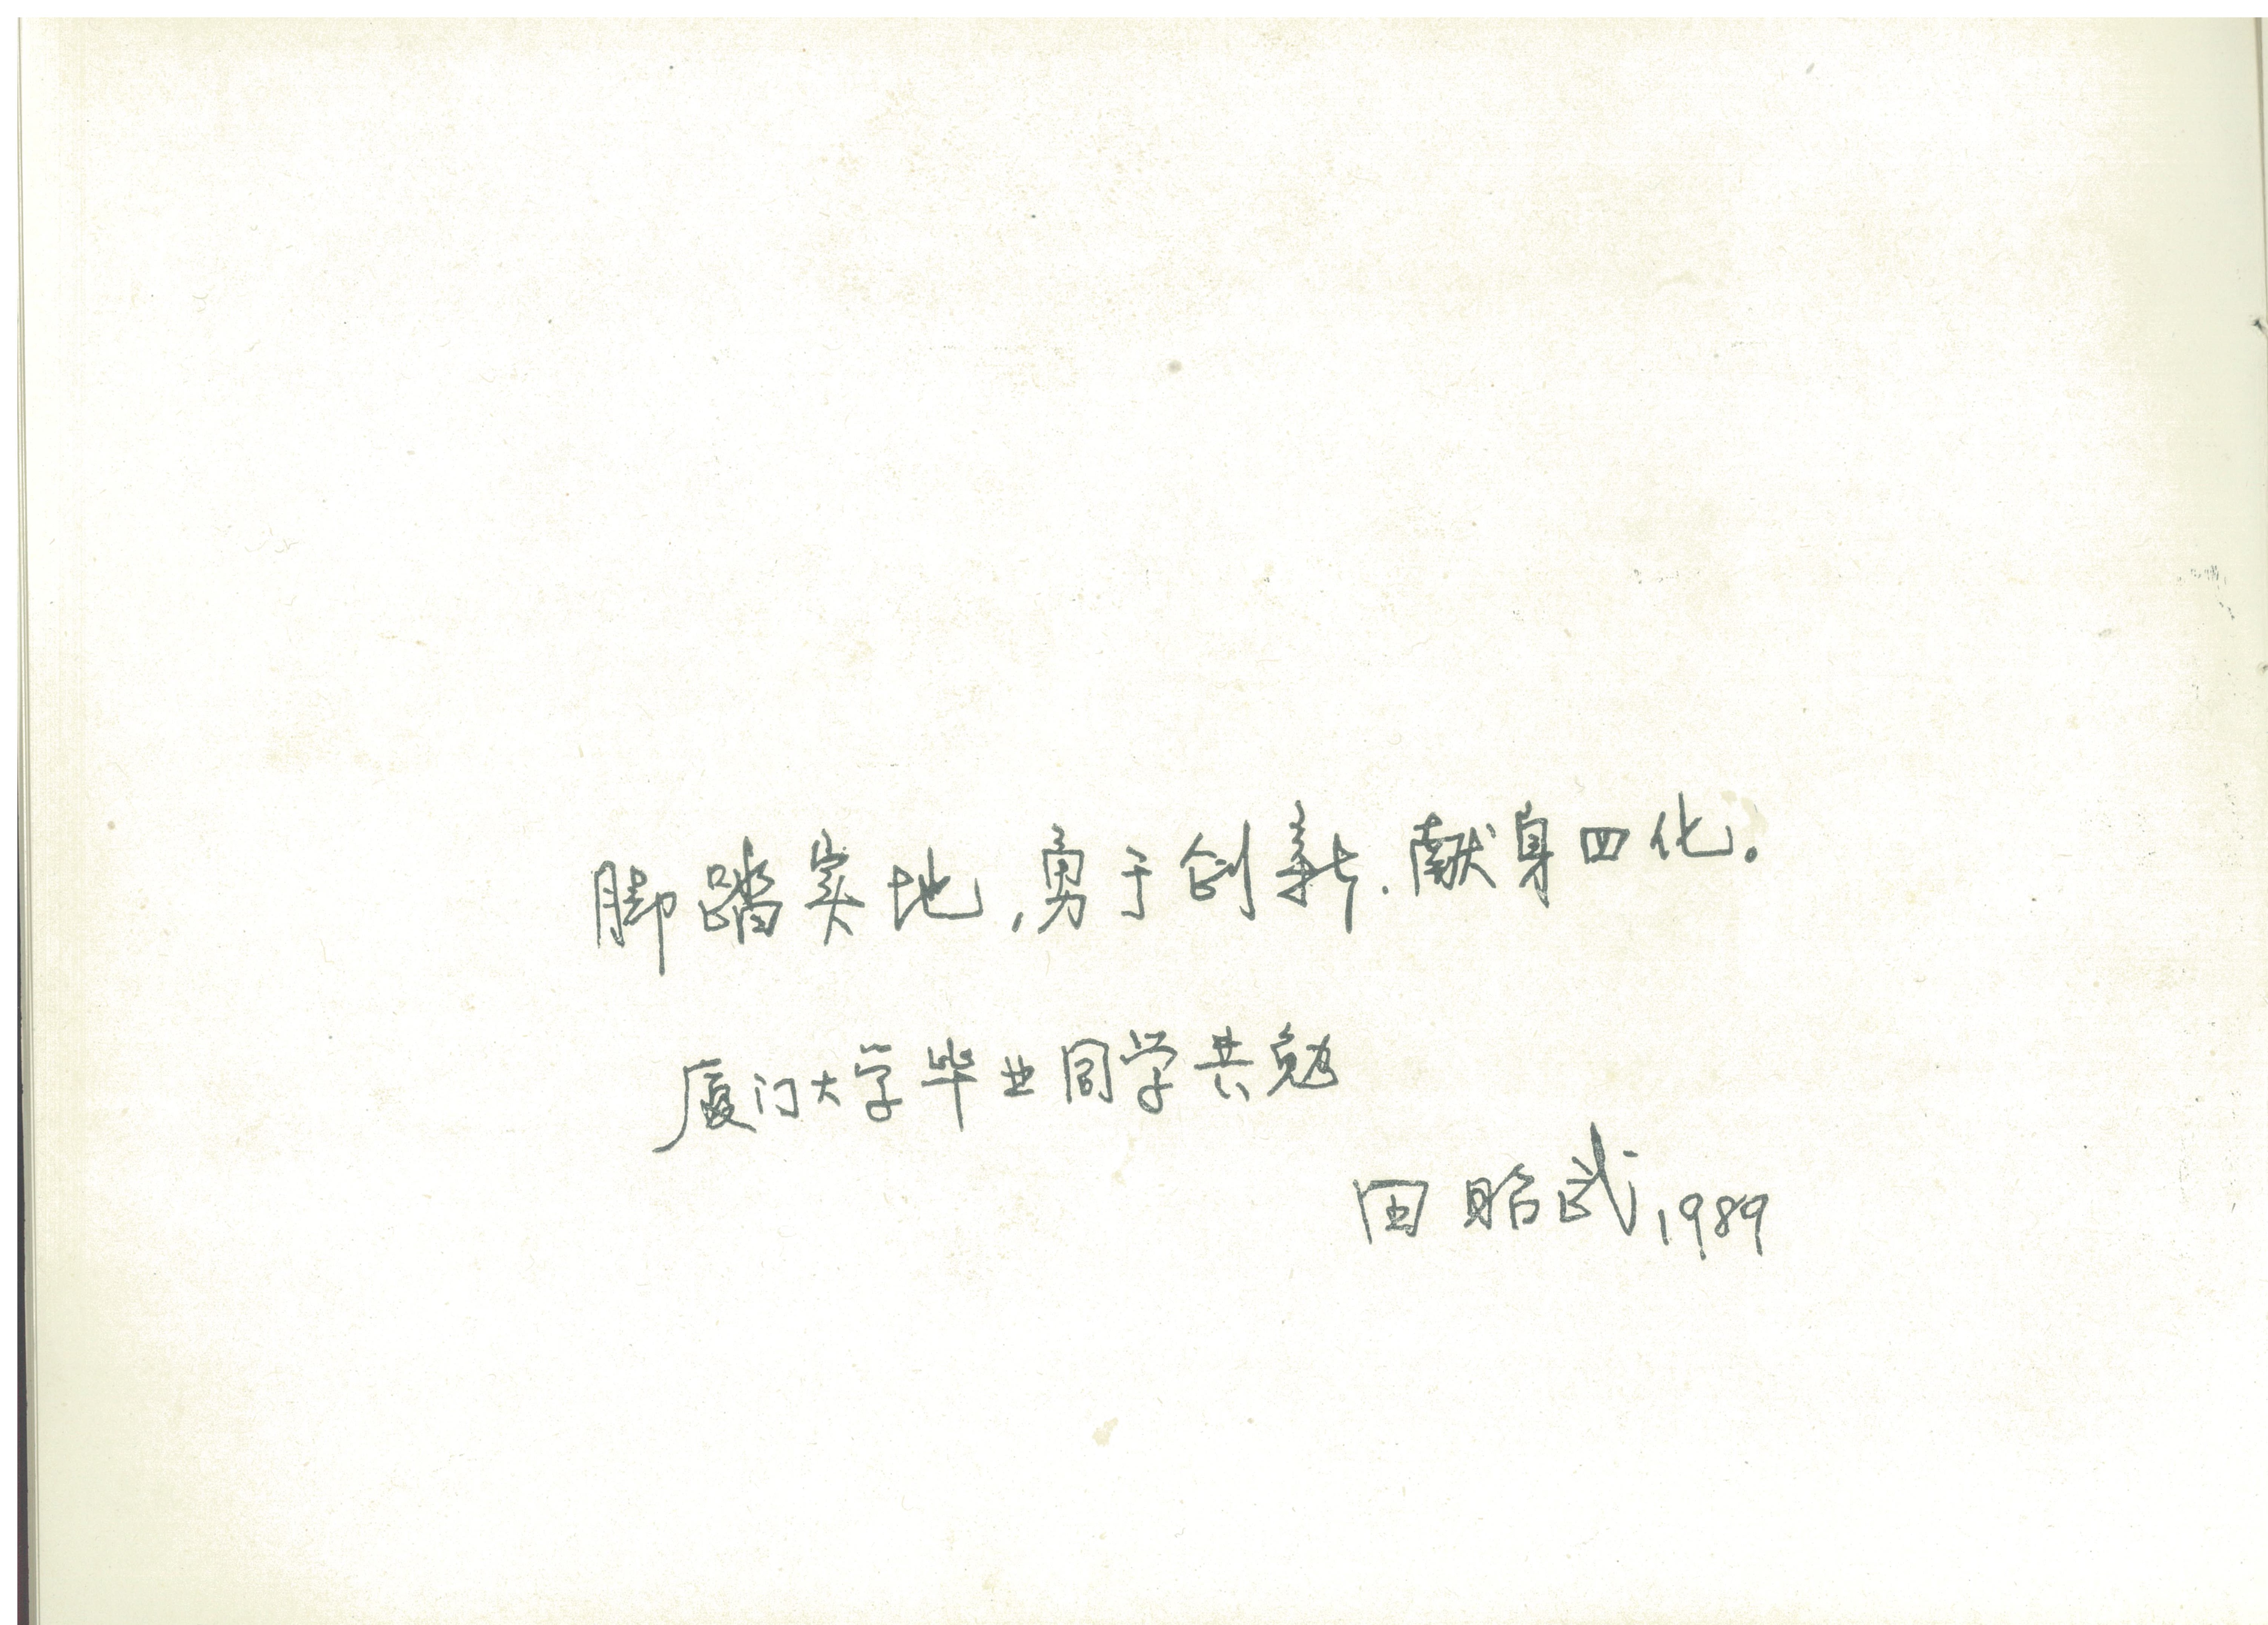 脚踏实地,勇于创新.献身四化。
厦门大学毕业同学共勉
田昭武 1989